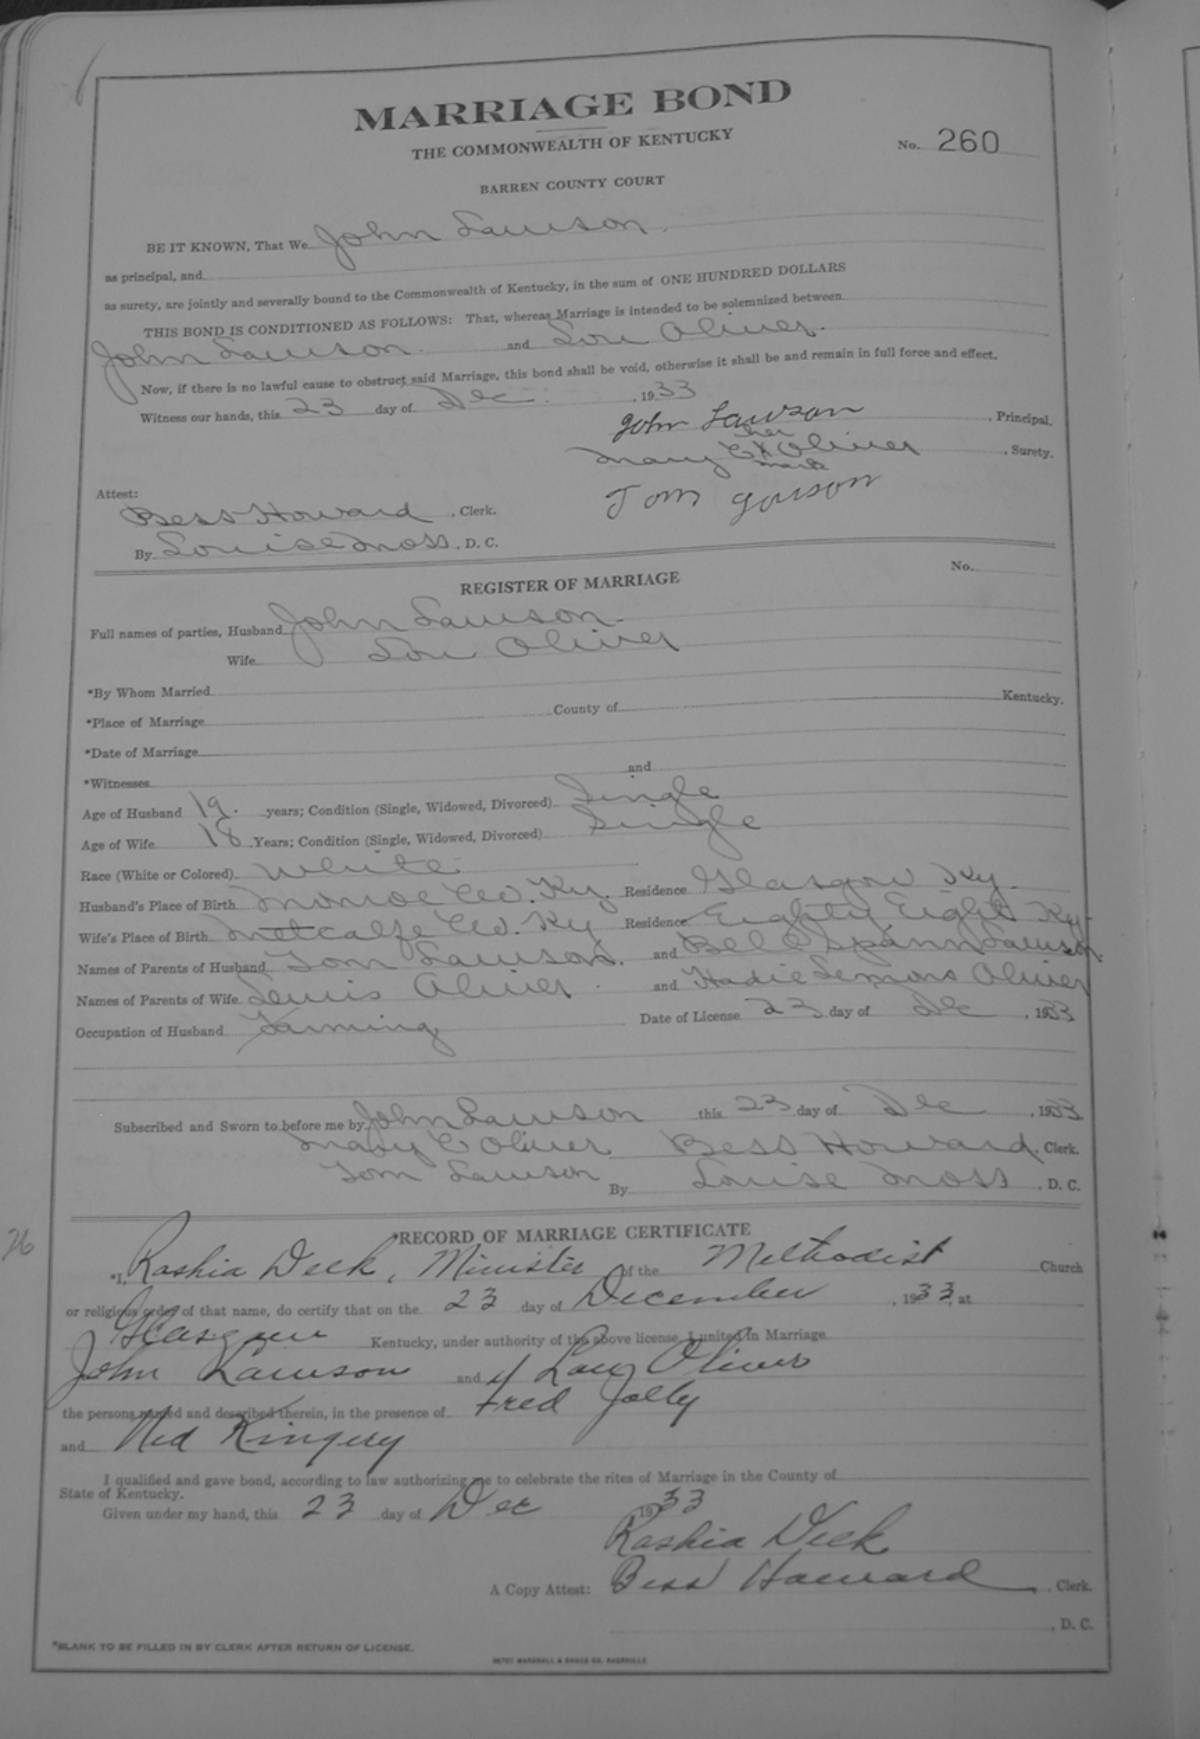 MARRIAGE BOND
THE COMMONWEALTH OF KENTUCKY
No. 260
BARREN COUNTY COURT
BE IT KNOWN, That We John Lawson
as principal, and
as surety, are jointly and severally bound to the Commonwealth of Kentucky, in the sum of ONE HUNDRED DOLLARS
THIS BOND IS CONDITIONED AS FOLLOWS: That, whereas Marriage is intended to be solemnized between
John Lawson and Lou Oliver.
Now, if there is no lawful cause to obstruct said Marriage, this bond shall be void, otherwise it shall be and remain in full force and effect.
Witness our hands, this 23 day of Dec. , 1933
John Lawson , Principal.
her
Mary E X Oliver , Surety.
mark
Attest: Tom
Bess Howard , Clerk.
By Louise Moss , D. C.
REGISTER OF MARRIAGE No.
Full names of parties, Husband John Lawson.
Wife Lou Oliver
*By Whom Married
*Place of Marriage County of Kentucky.
*Date of Marriage
*Witnesses and
Age of Husband 19. years; Condition (Single, Widowed, Divorced) Single
Age of Wife 18 Years; Condition (Single, Widowed, Divorced) Single
Race (White or Colored) White
Husband's Place of Birth Monroe Co. Ky. Residence Glasgow Ky.
Wife's Place of Birth Metcalfe Co. Ky Residence Eighty Eight Ky
Names of Parents of Husband Tom Lawson. and Bell Spann Lawson
Names of Parents of Wife Lewis Oliver and Hadie Lemons Oliver
Occupation of Husband Farming Date of License 23 day of Dec , 1933
Subscribed and Sworn to before me by John Lawson this 23 day of Dec , 1933
Mary E Oliver Bess Howard , Clerk.
Tom Lawson By Louise Moss , D. C.
26
*RECORD OF MARRIAGE CERTIFICATE
*I, Rashia Deck, Minister of the Methodist Church
or religious order of that name, do certify that on the 23 day of December , 1933 at
Glasgow Kentucky, under authority of the above license, I united in Marriage
John Lawson and Lou Oliver
the persons named and described therein, in the presence of Fred Jolly
and Ned Kingery
I qualified and gave bond, according to law authorizing me to celebrate the rites of Marriage in the County of
State of Kentucky.
Given under my hand, this 23 day of Dec 1933
Rashia Deck
A Copy Attest: Bess Howard , Clerk.
, D. C.
*BLANK TO BE FILLED IN BY CLERK AFTER RETURN OF LICENSE.